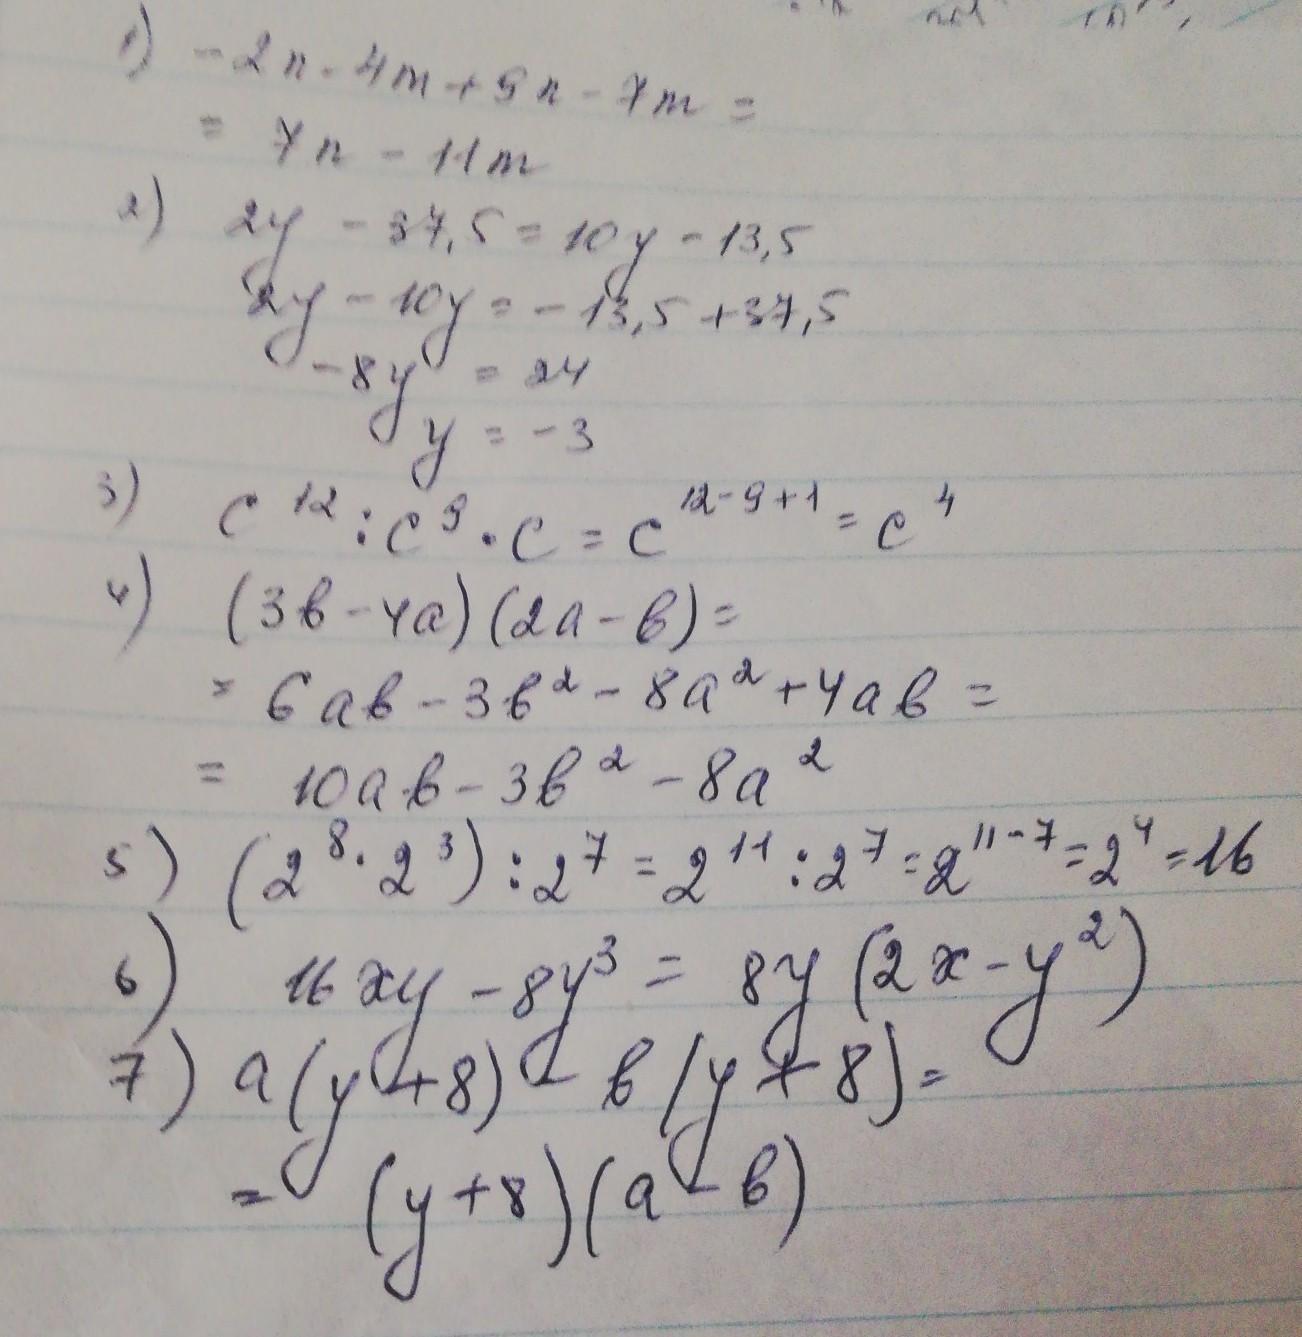 1) -2n - 4m + 9n - 7m =
= 7n - 11m
2) 2y - 37,5 = 10y - 13,5
2y - 10y = -13,5 + 37,5
-8y = 24
y = -3
3) c¹² : c⁹ · c = c¹²⁻⁹⁺¹ = c⁴
4) (3в - 4а)(2а - в) =
= 6ав - 3в² - 8а² + 4ав =
= 10ав - 3в² - 8а²
5) (2⁸ · 2³) : 2⁷ = 2¹¹ : 2⁷ = 2¹¹⁻⁷ = 2⁴ = 16
6) 16xy - 8y³ = 8y (2x - y²)
7) а(y + 8) - в (y + 8) =
= (y + 8)(а - в)